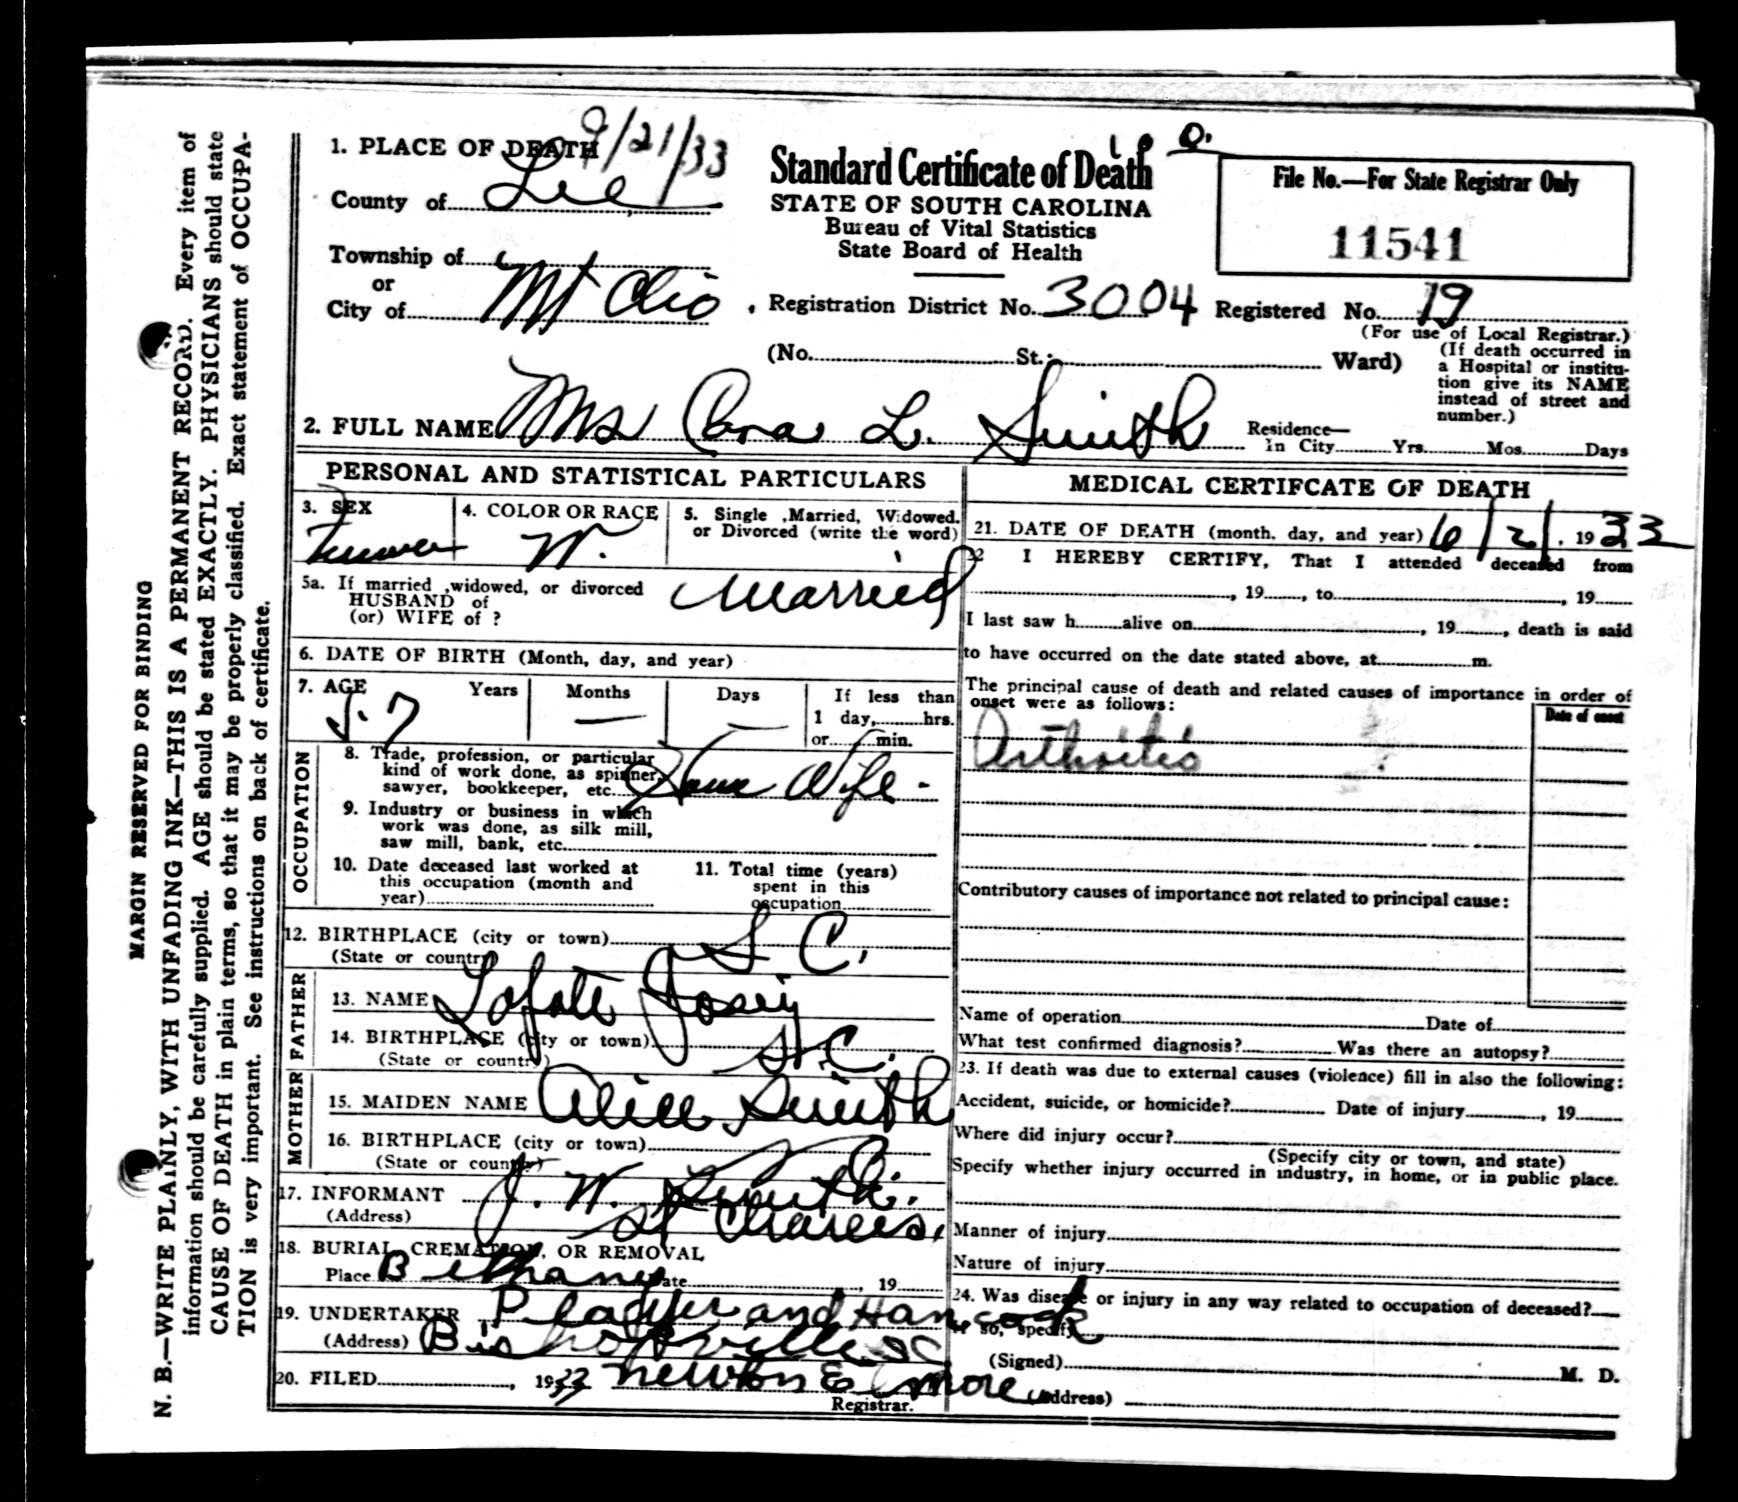 9/21/33
1. PLACE OF DEATH
County of Lee
Township of
or
City of Mt Clio
Standard Certificate of Death
STATE OF SOUTH CAROLINA
Bureau of Vital Statistics
State Board of Health
File No.—For State Registrar Only
11541
Registration District No. 3004 Registered No. 19
(For use of Local Registrar.)
(No. St.; Ward)
(If death occurred in
a Hospital or institu-
tion give its NAME
instead of street and
number.)
2. FULL NAME Mrs Cora L. Smith
Residence—
In City Yrs. Mos. Days
PERSONAL AND STATISTICAL PARTICULARS
3. SEX
4. COLOR OR RACE
W.
5. Single ,Married, Widowed.
or Divorced (write the word)
Married
5a. If married ,widowed, or divorced
HUSBAND of
(or) WIFE of ?
6. DATE OF BIRTH (Month, day, and year)
7. AGE Years Months Days
57 — —
If less than
1 day, hrs.
or min.
OCCUPATION
8. Trade, profession, or particular
kind of work done, as spinner,
sawyer, bookkeeper, etc. House Wife -
9. Industry or business in which
work was done, as silk mill,
saw mill, bank, etc.
10. Date deceased last worked at
this occupation (month and
year)
11. Total time (years)
spent in this
occupation
12. BIRTHPLACE (city or town) S C.
(State or country)
FATHER
13. NAME Lafate Josey
14. BIRTHPLACE (city or town) S.C.
(State or country)
MOTHER
15. MAIDEN NAME Alice Smith
16. BIRTHPLACE (city or town)
(State or country)
17. INFORMANT J. W. Smith.
(Address) St Charles,
18. BURIAL, CREMATION, OR REMOVAL
Place Bethany Date , 19
19. UNDERTAKER and Hancock
(Address) Bishopville SC
20. FILED , 1933 Newton Elmore
Registrar.
MEDICAL CERTIFCATE OF DEATH
21. DATE OF DEATH (month, day, and year) 6/21, 1933
22 I HEREBY CERTIFY, That I attended deceased from
, 19 , to , 19
I last saw h alive on , 19 , death is said
to have occurred on the date stated above, at m.
The principal cause of death and related causes of importance in order of
onset were as follows:
Date of onset
Arthritis
Contributory causes of importance not related to principal cause:
Name of operation Date of
What test confirmed diagnosis? Was there an autopsy?
23. If death was due to external causes (violence) fill in also the following:
Accident, suicide, or homicide? Date of injury , 19
Where did injury occur?
(Specify city or town, and state)
Specify whether injury occurred in industry, in home, or in public place.
Manner of injury
Nature of injury
24. Was disease or injury in any way related to occupation of deceased?
If so, specify
(Signed) M. D.
(Address)
MARGIN RESERVED FOR BINDING
N. B.—WRITE PLAINLY, WITH UNFADING INK—THIS IS A PERMANENT RECORD. Every item of
information should be carefully supplied. AGE should be stated EXACTLY. PHYSICIANS should state
CAUSE OF DEATH in plain terms, so that it may be properly classified. Exact statement of OCCUPA-
TION is very important. See instructions on back of certificate.